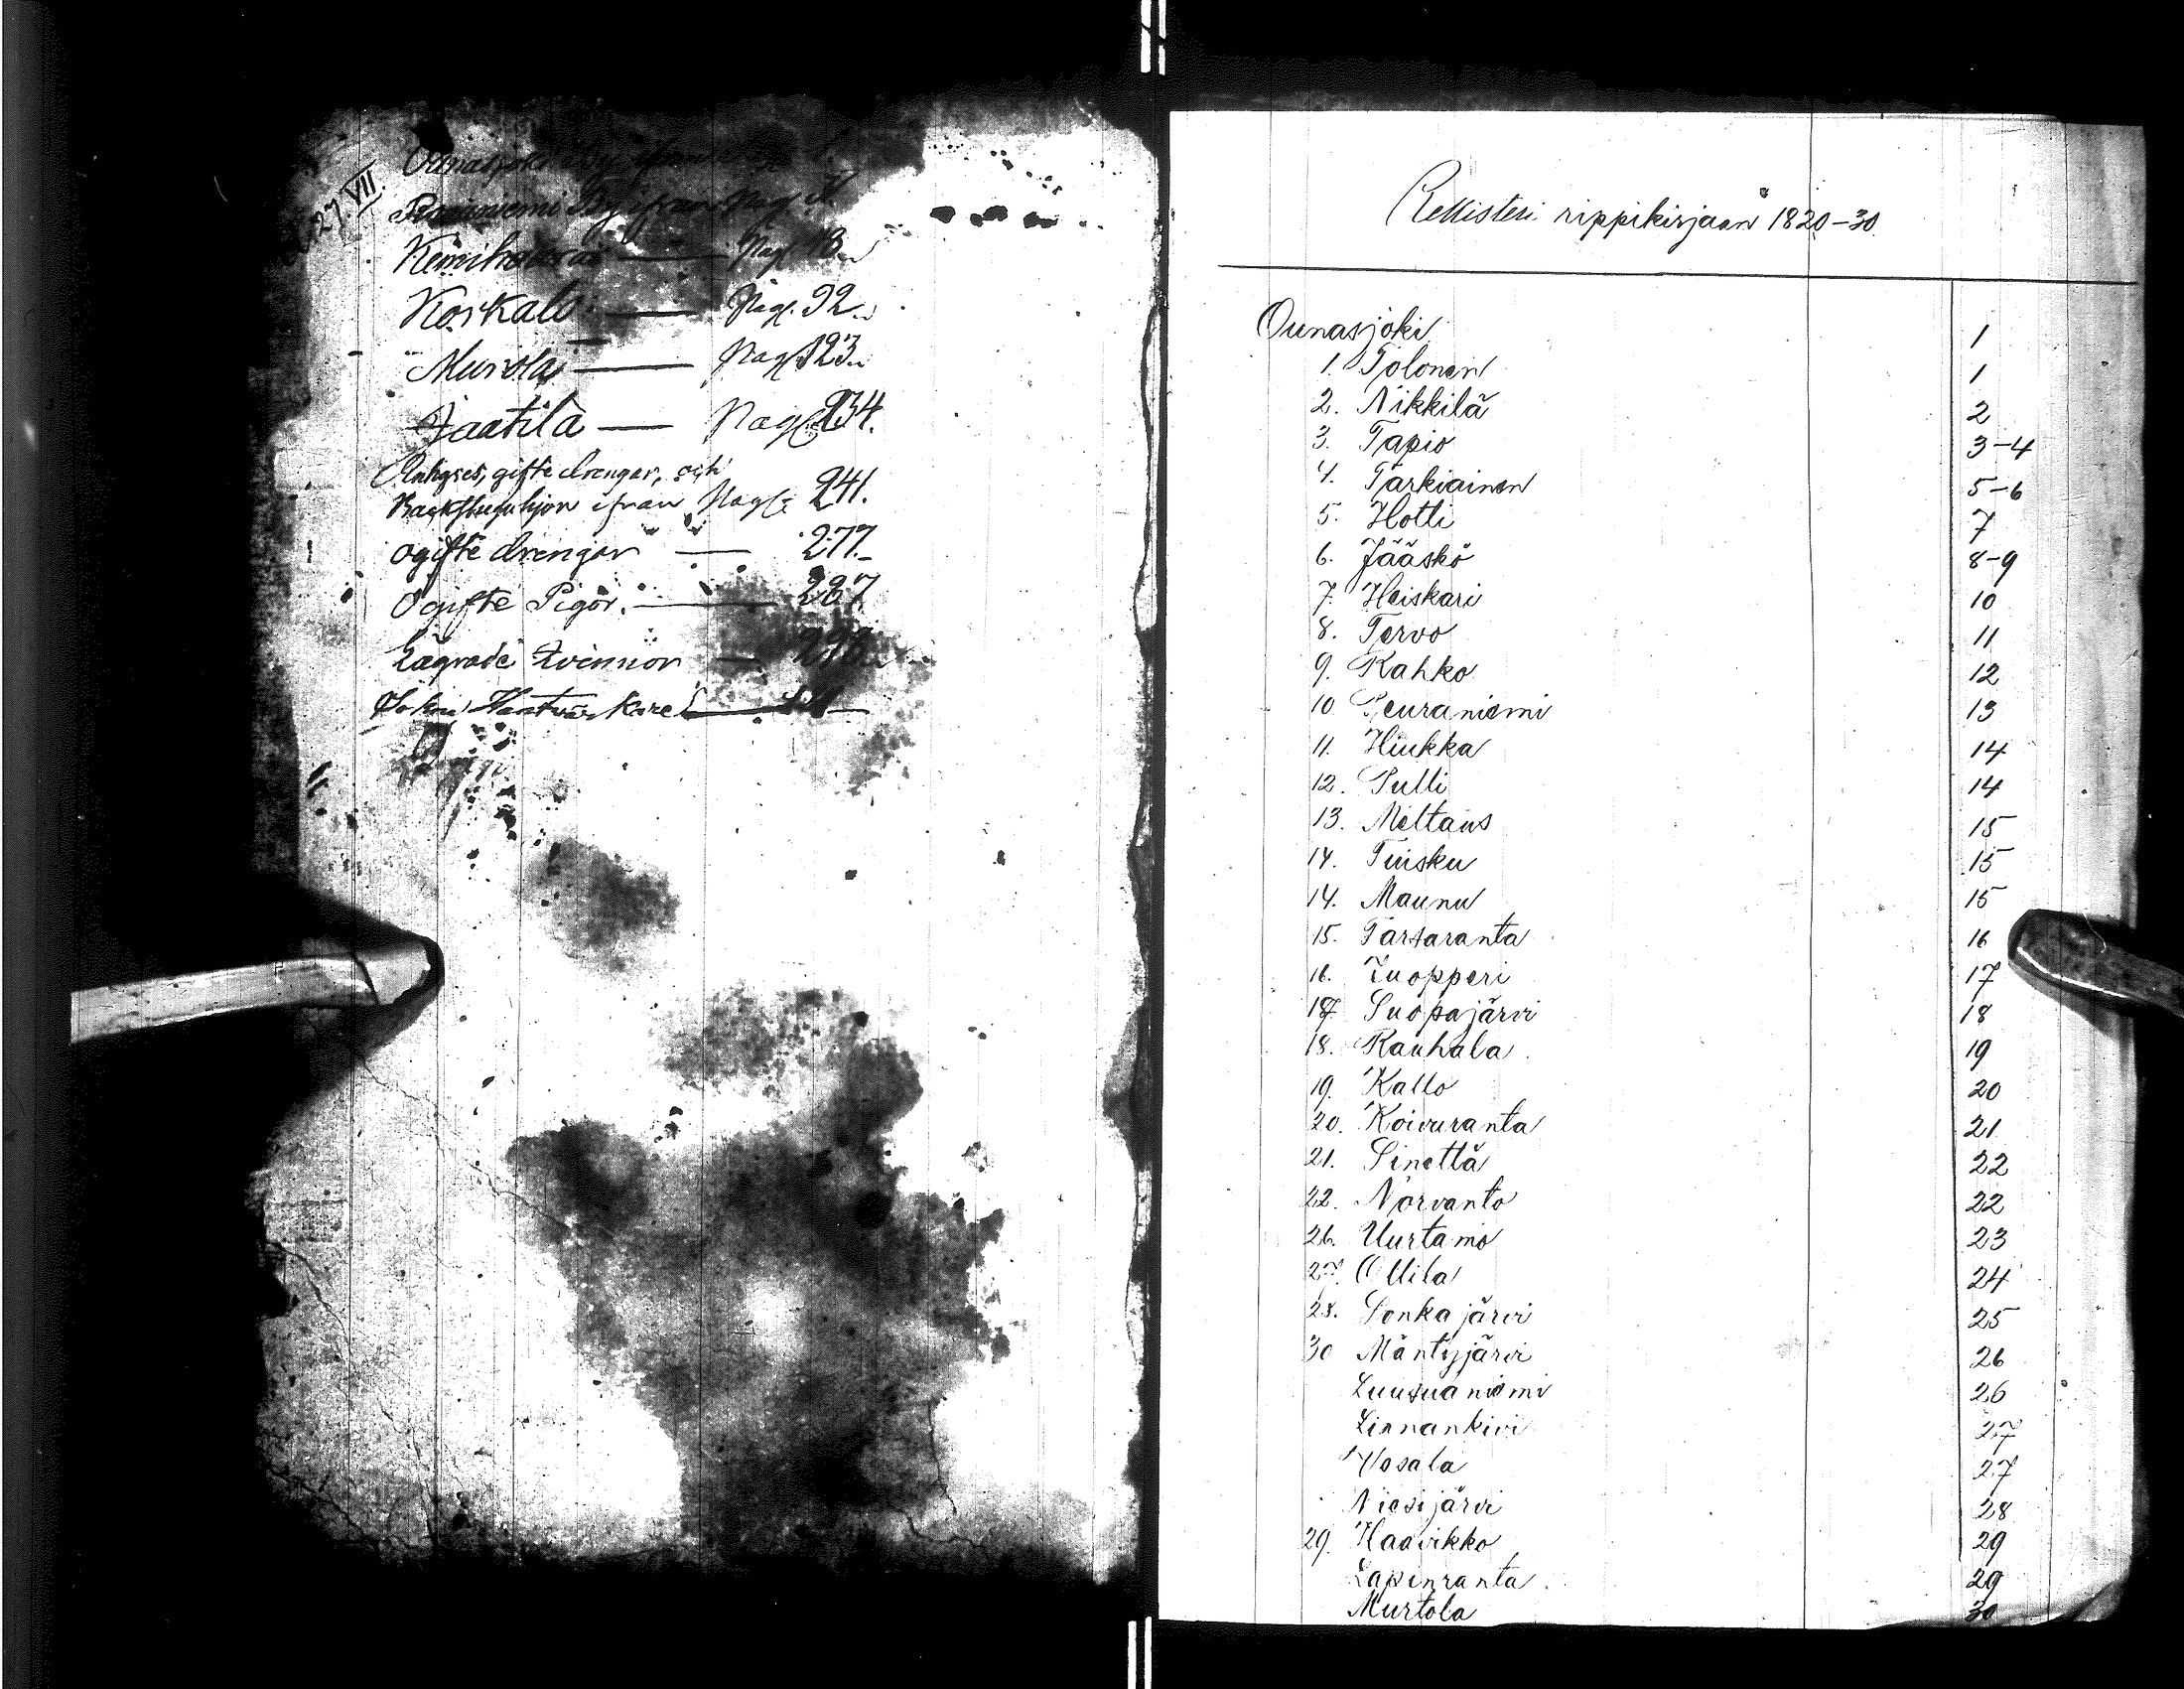 27 VII.
Ounasjoki By ifrån
Rovaniemi By ifrån Pag.
Kemihaara — Pag. 43.
Korkalo. — Pag. 92.
Muurola — Pag. 123.
Jaatila — Pag. 234.
Inhyses, gifte drengar, och
Backstuguhjon ifrån Pag. 241.
ogifte drengar — 277.
Ogifte Pigor. — 287
Lägrade Qvinnor — 298.
Sokne Hantvärkare —
Rekisteri rippikirjaan 1820–30.
Ounasjoki 1
1. Tolonen 1
2. Nikkilä 2
3. Tapio 3–4
4. Tarkiainen 5–6
5. Hotti 7
6. Jääskö 8–9
7. Heiskari 10
8. Tervo 11
9. Kahko 12
10. Peuraniemi 13
11. Hiukka 14
12. Pulli 14
13. Meltaus 15
14. Tuisku 15
14. Maunu 15
15. Partaranta 16
16. Luopperi 17
17. Suopajärvi 18
18. Rauhala 19
19. Kallo 20
20. Koivuranta 21
21. Sinettä 22
22. Norvanto 22
26. Uurtamo 23
27. Ollila 24
28. Sonkajärvi 25
30 Mäntyjärvi 26
Luusuaniemi 26
Linnankivi 27
Yosala 27
Niesijärvi 28
29. Haavikko 29
Lapinranta 29
Murtola 30